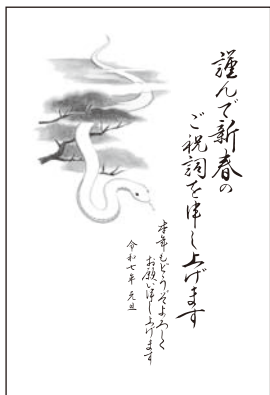 謹んで新春の
ご祝詞を申し上げます
本年もどうぞよろしく
お願い申し上げます
令和七年 元旦